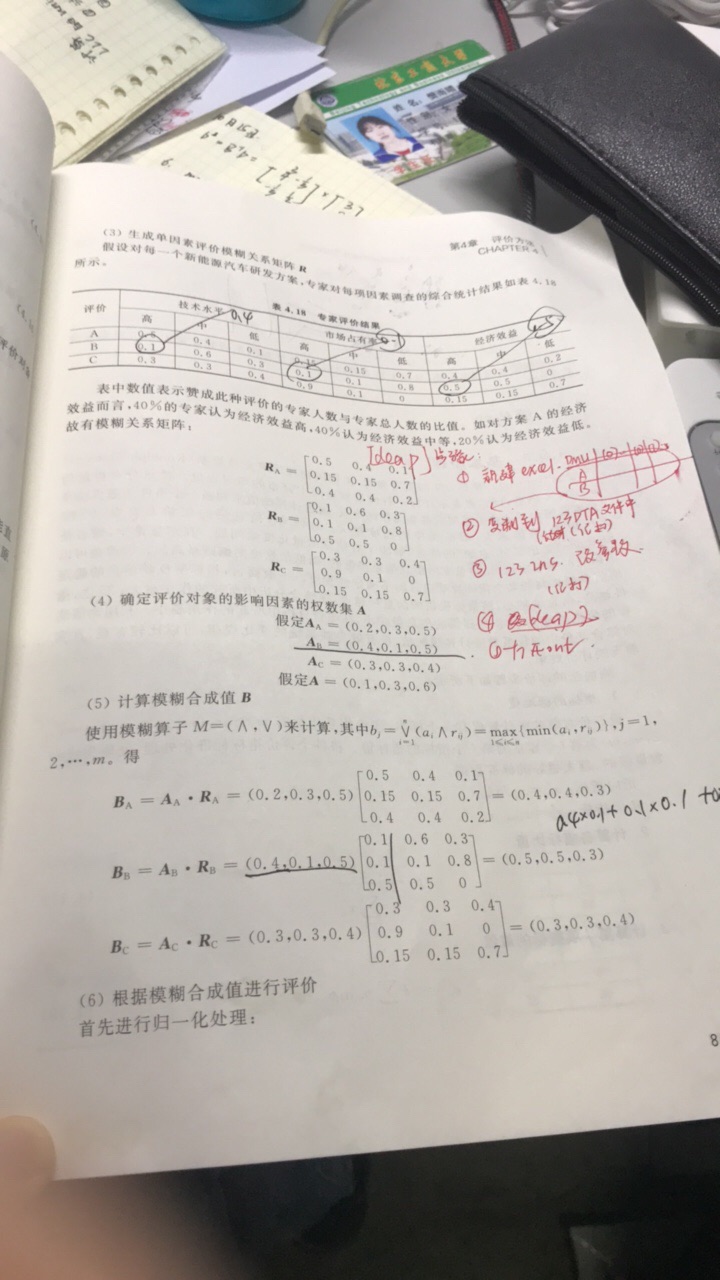 北京工商大学
姓名:
第4章 评价方法
CHAPTER 4
(3) 生成单因素评价模糊关系矩阵 R
假设对每一个新能源汽车研发方案,专家对每项因素调查的综合统计结果如表 4.18
所示。
表 4.18 专家评价结果
评价 技术水平 市场占有率 经济效益
高 中 低 高 中 低 高 中 低
A 0.5 0.4 0.1 0.15 0.15 0.7 0.4 0.4 0.2
B 0.1 0.6 0.3 0.1 0.1 0.8 0.5 0.5 0
C 0.3 0.3 0.4 0.9 0.1 0 0.15 0.15 0.7
0.4
表中数值表示赞成此种评价的专家人数与专家总人数的比值。如对方案 A 的经济
效益而言,40%的专家认为经济效益高,40%认为经济效益中等,20%认为经济效益低。
故有模糊关系矩阵:
R_A = [0.5 0.4 0.1
0.15 0.15 0.7
0.4 0.4 0.2]
R_B = [0.1 0.6 0.3
0.1 0.1 0.8
0.5 0.5 0]
R_C = [0.3 0.3 0.4
0.9 0.1 0
0.15 0.15 0.7]
[deap] 步骤:
① 新建 excel. DMU
A
B
② 复制到 123 DTA 文件中
③ 123 Ins. 改参数
④ deap
(4) 确定评价对象的影响因素的权数集 A
假定A_A = (0.2,0.3,0.5)
A_B = (0.4,0.1,0.5)
A_C = (0.3,0.3,0.4)
假定A = (0.1,0.3,0.6)
(5) 计算模糊合成值 B
使用模糊算子 M=(∧,∨)来计算,其中b_j = ∨_{i=1}^{n} (a_i ∧ r_ij) = max_{1≤i≤n}{min(a_i,r_ij)},j=1,
2,…,m。得
B_A = A_A · R_A = (0.2,0.3,0.5) [0.5 0.4 0.1
0.15 0.15 0.7
0.4 0.4 0.2] = (0.4,0.4,0.3)
0.4×0.1+0.1×0.1+
B_B = A_B · R_B = (0.4,0.1,0.5) [0.1 0.6 0.3
0.1 0.1 0.8
0.5 0.5 0] = (0.5,0.5,0.3)
B_C = A_C · R_C = (0.3,0.3,0.4) [0.3 0.3 0.4
0.9 0.1 0
0.15 0.15 0.7] = (0.3,0.3,0.4)
(6) 根据模糊合成值进行评价
首先进行归一化处理:
8